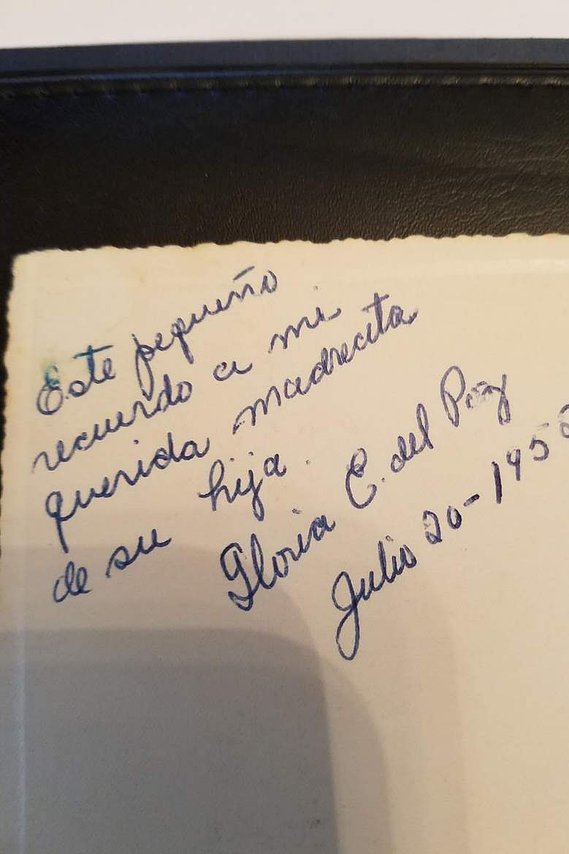 Este pequeño
recuerdo a mi
querida madrecita
de su hija.
Gloria E. del
Julio 20-195